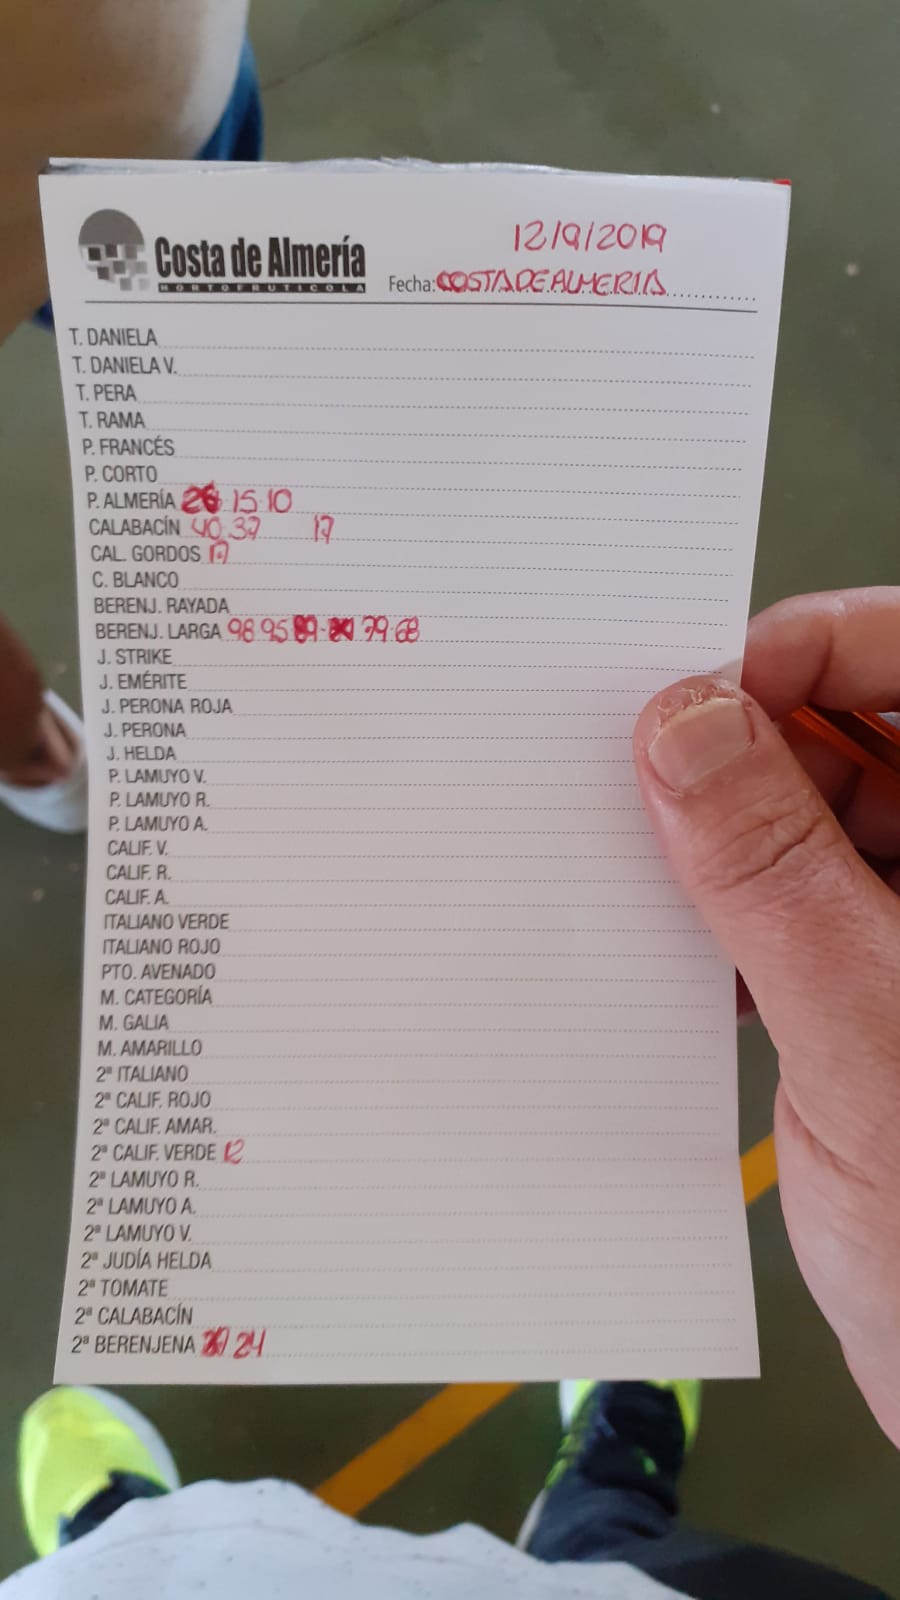 12/9/2019
Costa de Almería
HORTOFRUTICOLA
Fecha: COSTA DE ALMERIA
T. DANIELA
T. DANIELA V.
T. PERA
T. RAMA
P. FRANCÉS
P. CORTO
P. ALMERÍA 15-10
CALABACÍN 40 37 17
CAL. GORDOS 17
C. BLANCO
BERENJ. RAYADA
BERENJ. LARGA 98 95 79-68
J. STRIKE
J. EMÉRITE
J. PERONA ROJA
J. PERONA
J. HELDA
P. LAMUYO V.
P. LAMUYO R.
P. LAMUYO A.
CALIF. V.
CALIF. R.
CALIF. A.
ITALIANO VERDE
ITALIANO ROJO
PTO. AVENADO
M. CATEGORÍA
M. GALIA
M. AMARILLO
2ª ITALIANO
2ª CALIF. ROJO
2ª CALIF. AMAR.
2ª CALIF. VERDE 12
2ª LAMUYO R.
2ª LAMUYO A.
2ª LAMUYO V.
2ª JUDÍA HELDA
2ª TOMATE
2ª CALABACÍN
2ª BERENJENA 24